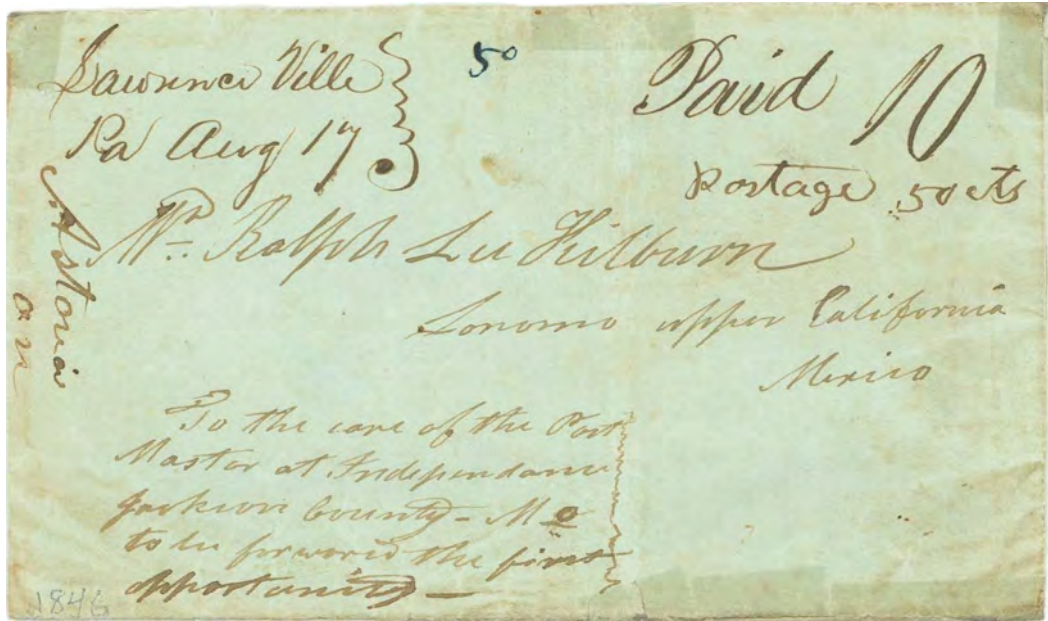 Lawrence Ville
Pa Aug 17
50
Paid 10
Postage 50 cts
Astoria
Mr. Ralph Lee Kilburn
Sonomo upper California
Mexico
To the care of the Post
Master at Independance
Jackson County - Mo
to be forward the first
opportunity -
1846